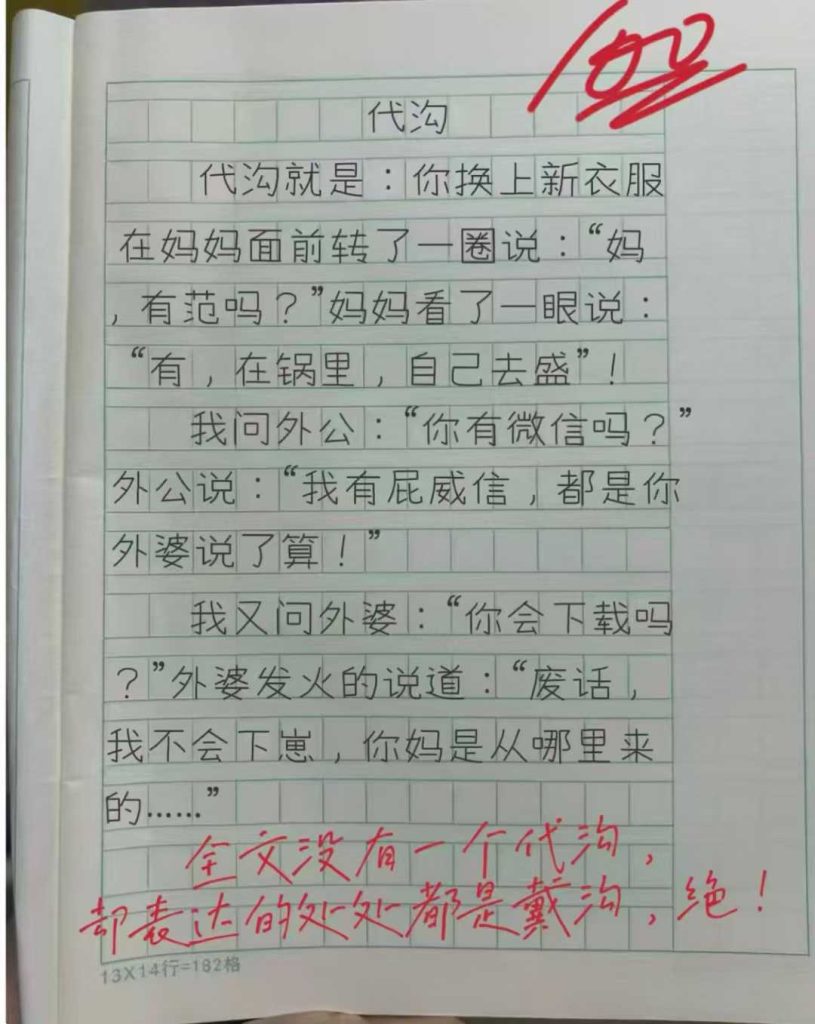 100
代沟
代沟就是：你换上新衣服
在妈妈面前转了一圈说：“妈
，有范吗？”妈妈看了一眼说：
“有，在锅里，自己去盛”！
我问外公：“你有微信吗？”
外公说：“我有屁威信，都是你
外婆说了算！”
我又问外婆：“你会下载吗
？”外婆发火的说道：“废话，
我不会下崽，你妈是从哪里来
的……”
全文没有一个代沟，
却表达的处处都是戴沟，绝！
13X14行=182格